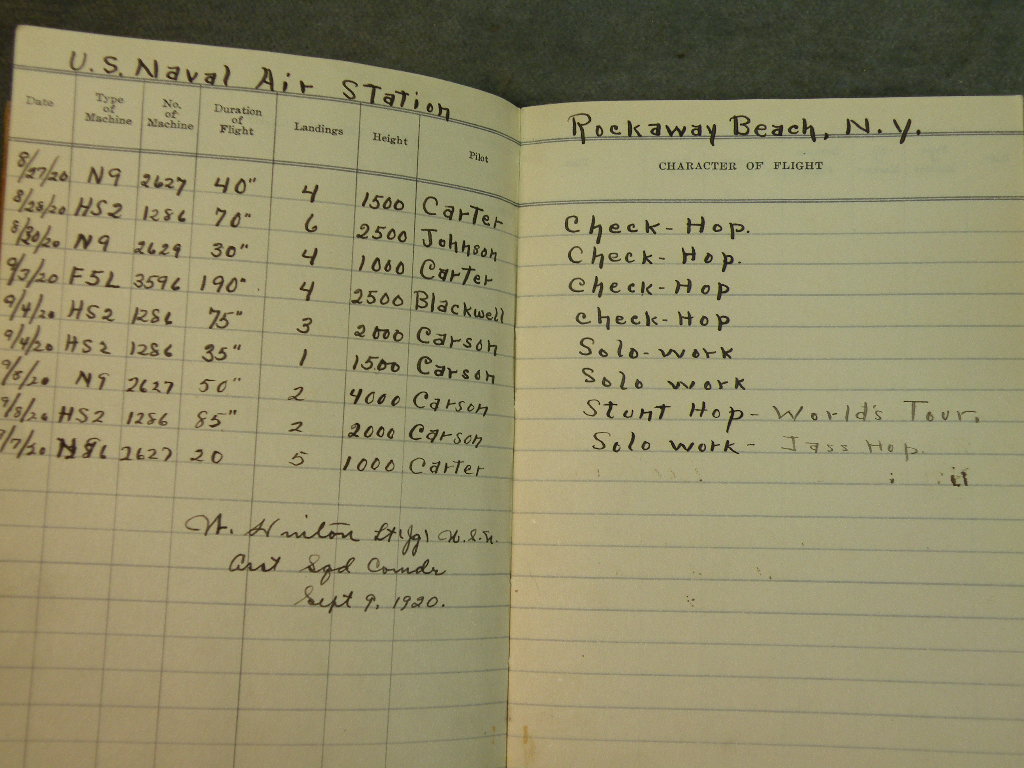 U.S. Naval Air Station
Rockaway Beach, N.Y.
Date Type of Machine No. of Machine Duration of Flight Landings Height Pilot CHARACTER OF FLIGHT
8/27/20 N9 2627 40" 4 1500 Carter Check-Hop.
8/28/20 HS2 1286 70" 6 2500 Johnson Check-Hop.
8/30/20 N9 2629 30" 4 1000 Carter Check-Hop
9/3/20 F5L 3596 190" 4 2500 Blackwell Check-Hop
9/4/20 HS2 1286 75" 3 2000 Carson Solo-work
9/4/20 HS2 1286 35" 1 1500 Carson Solo work
9/5/20 N9 2627 50" 2 4000 Carson Stunt Hop-World's Tour.
9/8/20 HS2 1286 85" 2 2000 Carson Solo work-Jass Hop.
/7/20 2627 20 5 1000 Carter
W. Hinton Lt(jg) U.S.N.
Asst Sqd Comdr
Sept 9, 1920.